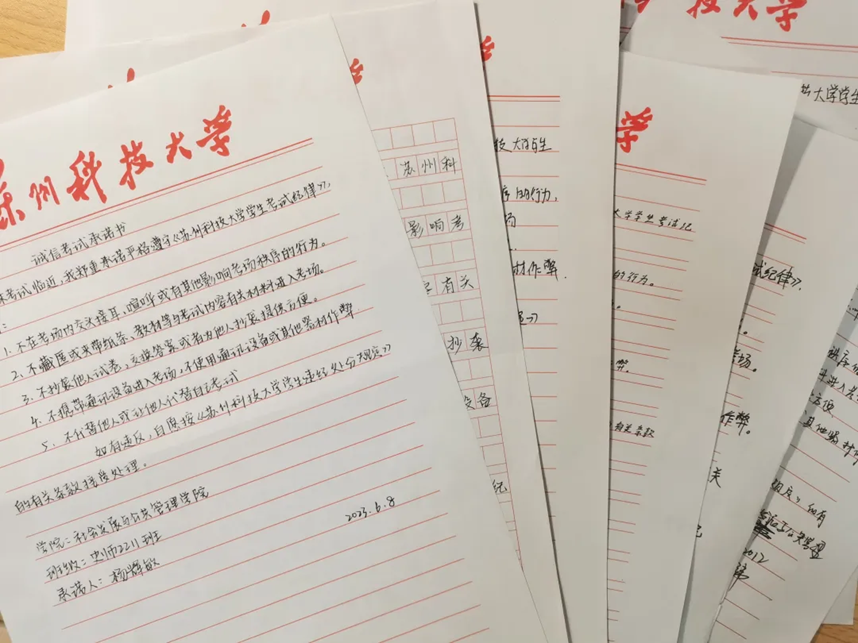 苏州科技大学
诚信考试承诺书
考试临近,我郑重承诺严格遵守《苏州科技大学学生考试纪律》,
1. 不在考场内交头接耳、喧哗或有其他影响考场秩序的行为。
2. 不藏匿或夹带纸条、教材等与考试内容有关材料进入考场。
3. 不抄袭他人试卷、交换答案或者为他人抄袭提供方便。
4. 不携带通讯设备进入考场,不使用通讯设备或其他器材作弊
5. 不代替他人或让他人代替自己考试
如有违反,自愿按《苏州科技大学学生违纪处分规定》
的有关条款接受处理。
学院:社会发展与公共管理学院
班级:史师2211班
承诺人:杨辉敏
2023.6.8
学
苏州科
影响考
有关
抄袭
设备
纪
学
的行为,
材作弊.
学
大学学生考试纪
的行为。
弊.
有关条款
科技大学
大学学生
试纪律》.
考场.
作弊.
关
方便
2012